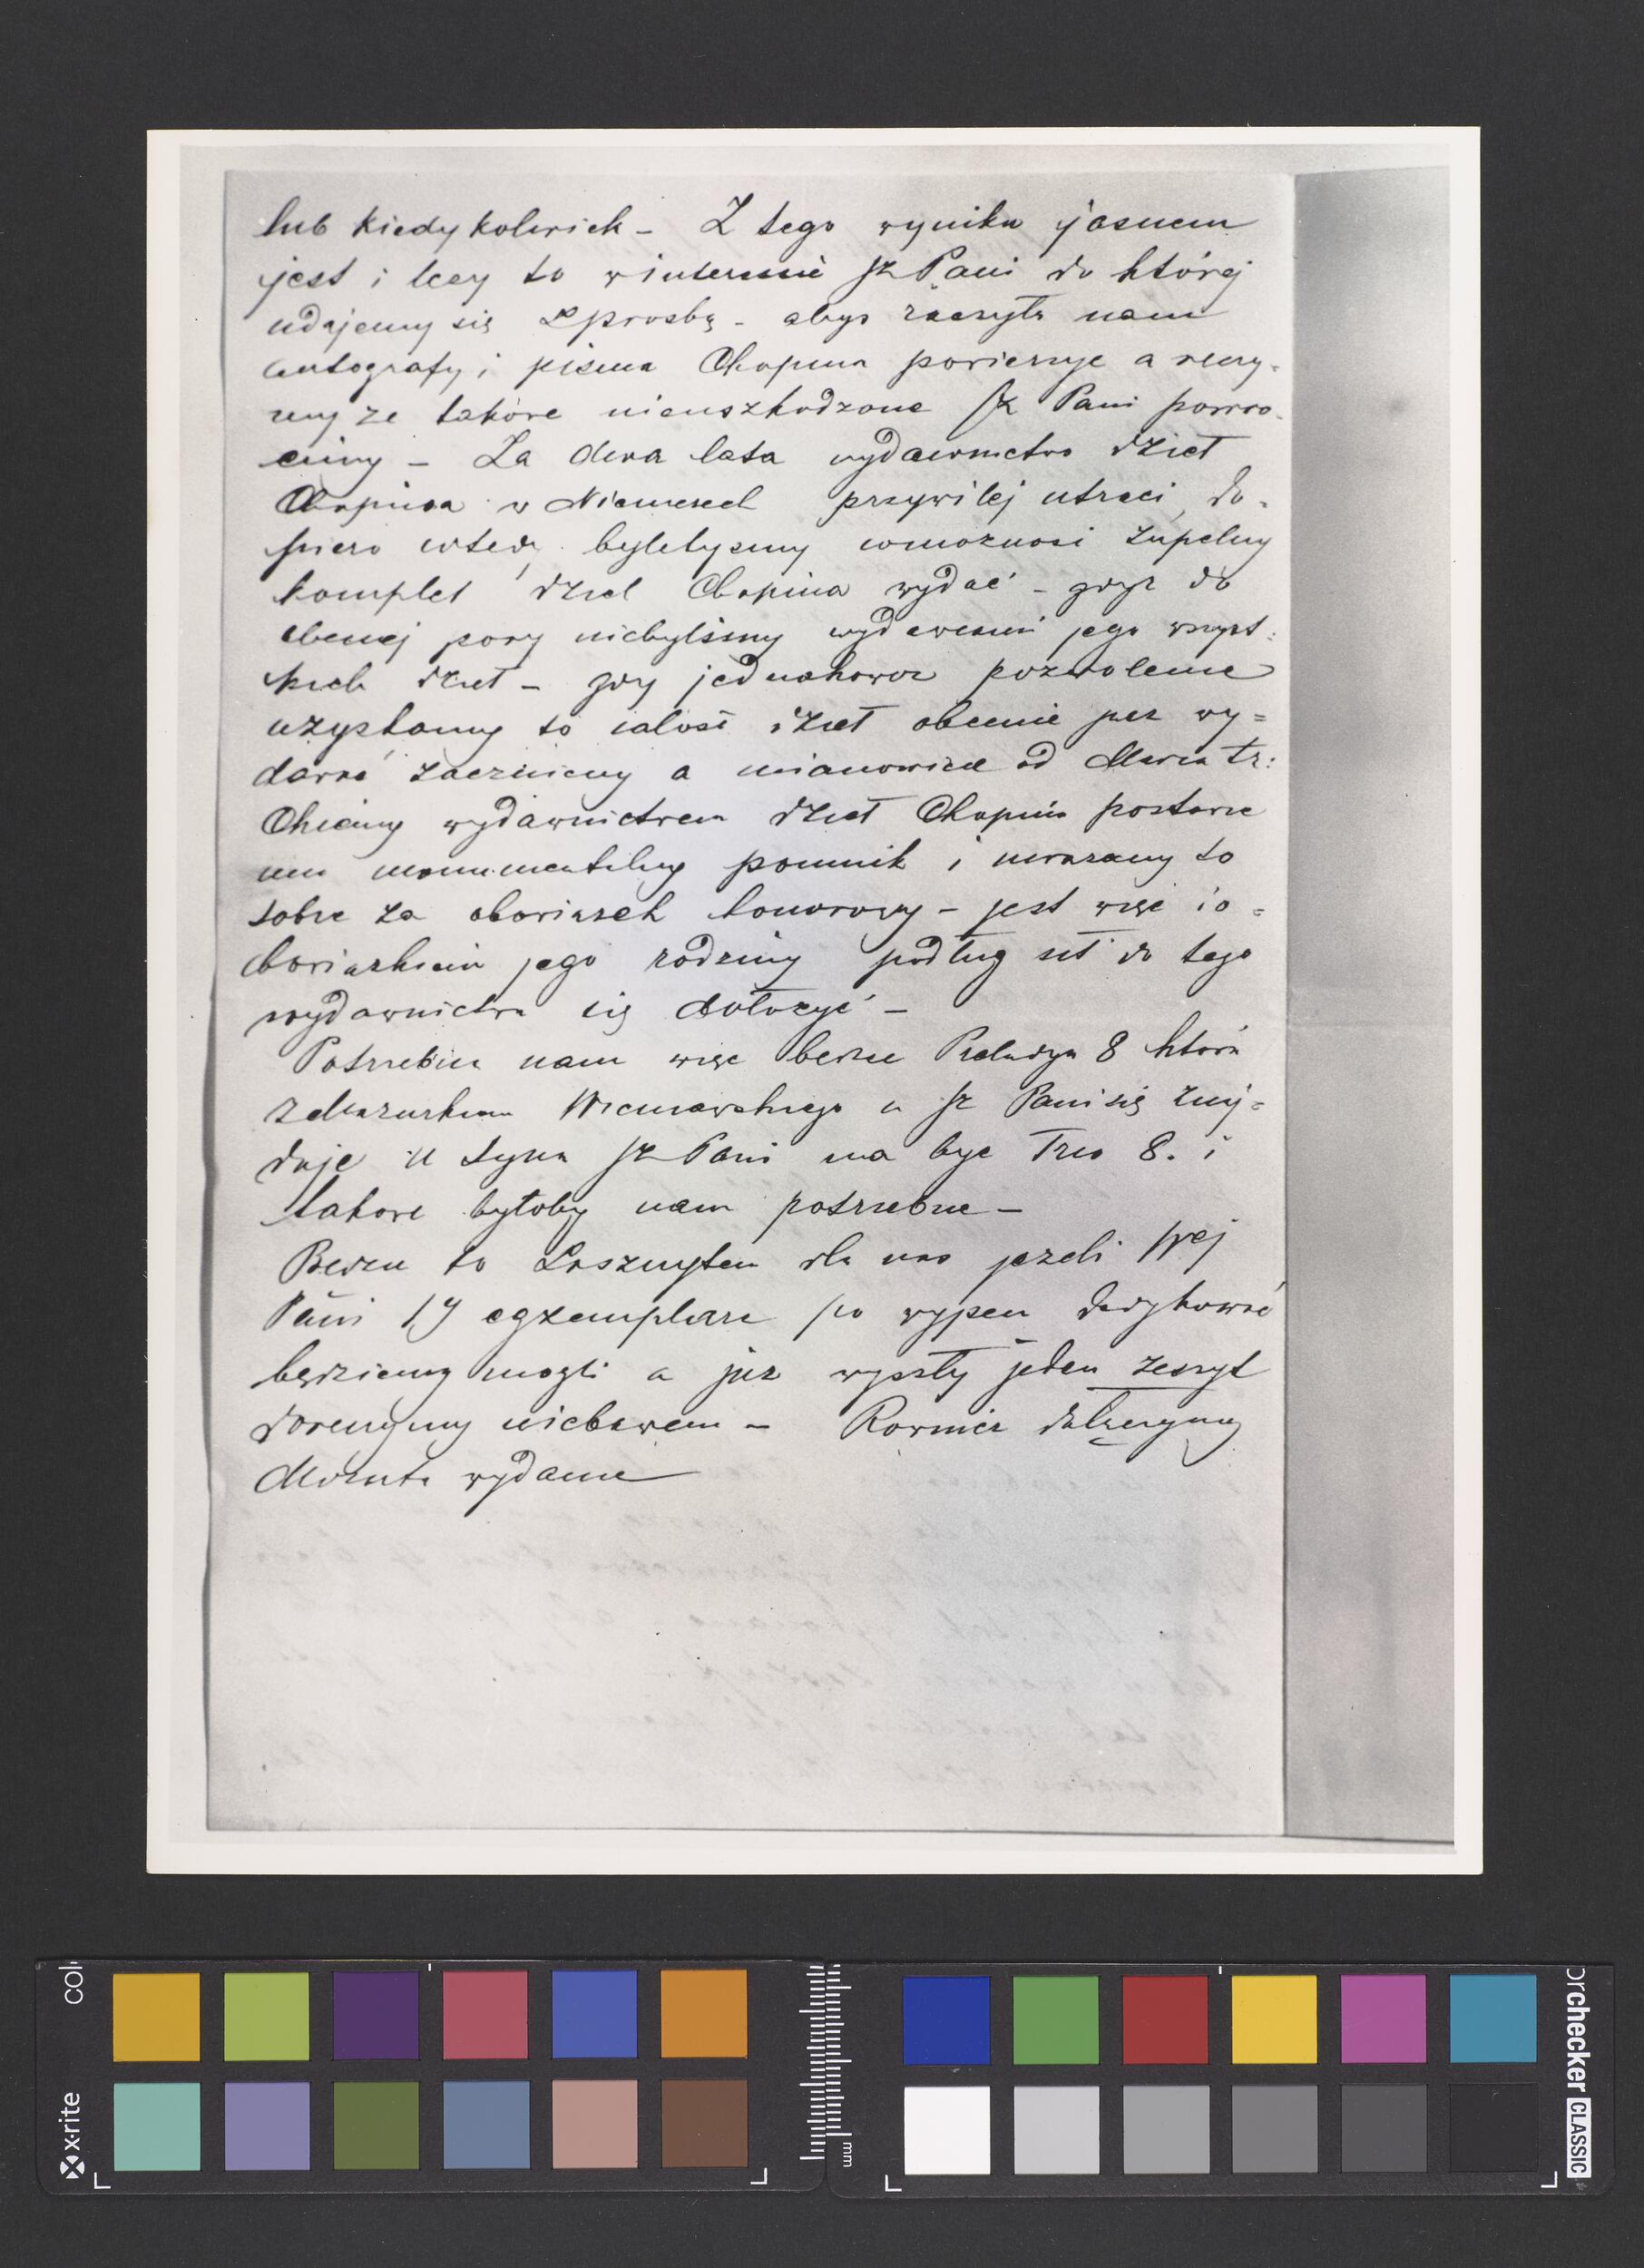 lub kiedykolwiek – Z tego wynika jasnem
jest i leży to w interesie Sz Pani do której
udajemy się z prośbą – abyś raczyła nam
autografy i pisma Chopina a
my że takowe nieuszkodzone Sz Pani powró-
cimy – Za dwa lata wydawnictwo dzieł
Chopina w Niemczech przywilej utraci, do-
piero wtedy bylibyśmy wmożności zupełny
komplet dzieł Chopina wydać – gdyż do
obecnej pory niebyliśmy jego wszyst:
kich dzieł – gdy jednakowoż pozwolenie
uzyskamy to całość dzieł obecnie już wy=
dawać zaczniemy a mianowicie od
Chcemy wydawnictwem dzieł Chopina postawić
mu monumentalny pomnik i uważamy to
sobie za obowiązek honorowy – jest więc i o=
bowiązkiem jego rodziny podług sił do tego
wydawnictwa się dołożyć –
Potrzebne nam więc będzie Preludyu 8 które
z Mazurkiem u Sz Pani się znaj=
duje u Syna Sz Pani ma być Trio 8. i
takowe byłoby nam potrzebne –
Będzie to Zaszczytem dla nas jeżeli Wej
Pani egzemplarz po dedykować
będziemy mogli a już wyszły jeden zeszyt
doręczymy niebawem – Rownież dołączymy
Mozarta wydanie
x-rite
colorchecker CLASSIC
mm